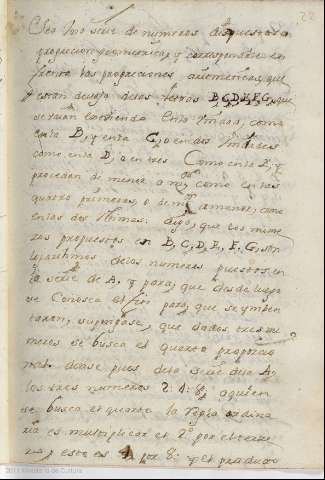 22
Sea una serie de numeros dispuestos a
proporcion geometrica, y correspondan en
frente las progreciones aritmeticas, que
estan devajo de las letras B, C, D, E, F, G, que
se vaian exediendo en la Unidad, como
en la B, y en la C, o en dos Unidades
como en la D, o en tres Como en la E, y
procedan de menor a mor, como en las
quatro primeras, o de mor a menor, como
en las dos ultimas: digo, que los nume
ros propuestos en B, C, D, E, F, G, son
logaritmos de los numeros puestos en
la serie de A. Y para, que desde luego
se Conosca el fin para, que se ynben
taron, supongase, que dados tres nu
meros se busca el quarto proporcio
nal. dense pues de la serie de la A.
los tres numeros 2: 4: 8: a quien
se busca el quarto la regla ordina
ria es multiplicar el 2o. por el terce
ro, y esto es 4 por 8: y el producto
2011 Ministerio de Cultura